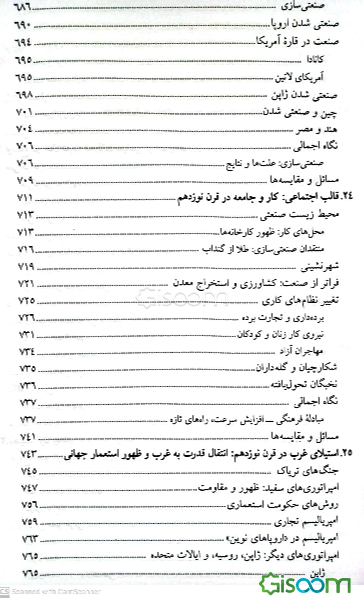 صنعتی‌سازی ... ۶۸۶
صنعتی شدن اروپا ... ۶۹۰
صنعت در قارهٔ آمریکا ... ۶۹۴
کانادا ... ۶۹۵
آمریکای لاتین ... ۶۹۵
صنعتی شدن ژاپن ... ۶۹۸
چین و صنعتی شدن ... ۷۰۱
هند و مصر ... ۷۰۴
نگاه اجمالی ... ۷۰۶
صنعتی‌سازی: علت‌ها و نتایج ... ۷۰۶
مسائل و مقایسه‌ها ... ۷۰۹
۲۴. قالب اجتماعی: کار و جامعه در قرن نوزدهم ... ۷۱۱
محیط زیست صنعتی ... ۷۱۳
محل‌های کار: ظهور کارخانه‌ها ... ۷۱۳
منتقدان صنعتی‌سازی: طلا از گنداب ... ۷۱۶
شهرنشینی ... ۷۱۹
فراتر از صنعت: کشاورزی و استخراج معدن ... ۷۲۱
تغییر نظام‌های کاری ... ۷۲۵
برده‌داری و تجارت برده ... ۷۲۶
نیروی کار زنان و کودکان ... ۷۳۱
مهاجران آزاد ... ۷۳۴
شکارچیان و گله‌داران ... ۷۳۵
نخبگان تحول‌یافته ... ۷۳۶
نگاه اجمالی ... ۷۳۷
مبادلهٔ فرهنگی ــ افزایش سرعت، راه‌های تازه ... ۷۳۷
مسائل و مقایسه‌ها ... ۷۴۱
۲۵. استیلای غرب در قرن نوزدهم: انتقال قدرت به غرب و ظهور استعمار جهانی ... ۷۴۳
جنگ‌های تریاک ... ۷۴۵
امپراتوری‌های سفید: ظهور و مقاومت ... ۷۴۷
روش‌های حکومت استعماری ... ۷۵۶
امپریالیسم تجاری ... ۷۵۹
امپریالیسم در «اروپاهای نوین» ... ۷۶۳
امپراتوری‌های دیگر: ژاپن، روسیه، و ایالات متحده ... ۷۶۵
ژاپن ... ۷۶۵
CS Scanned with CamScanner
Gisoom